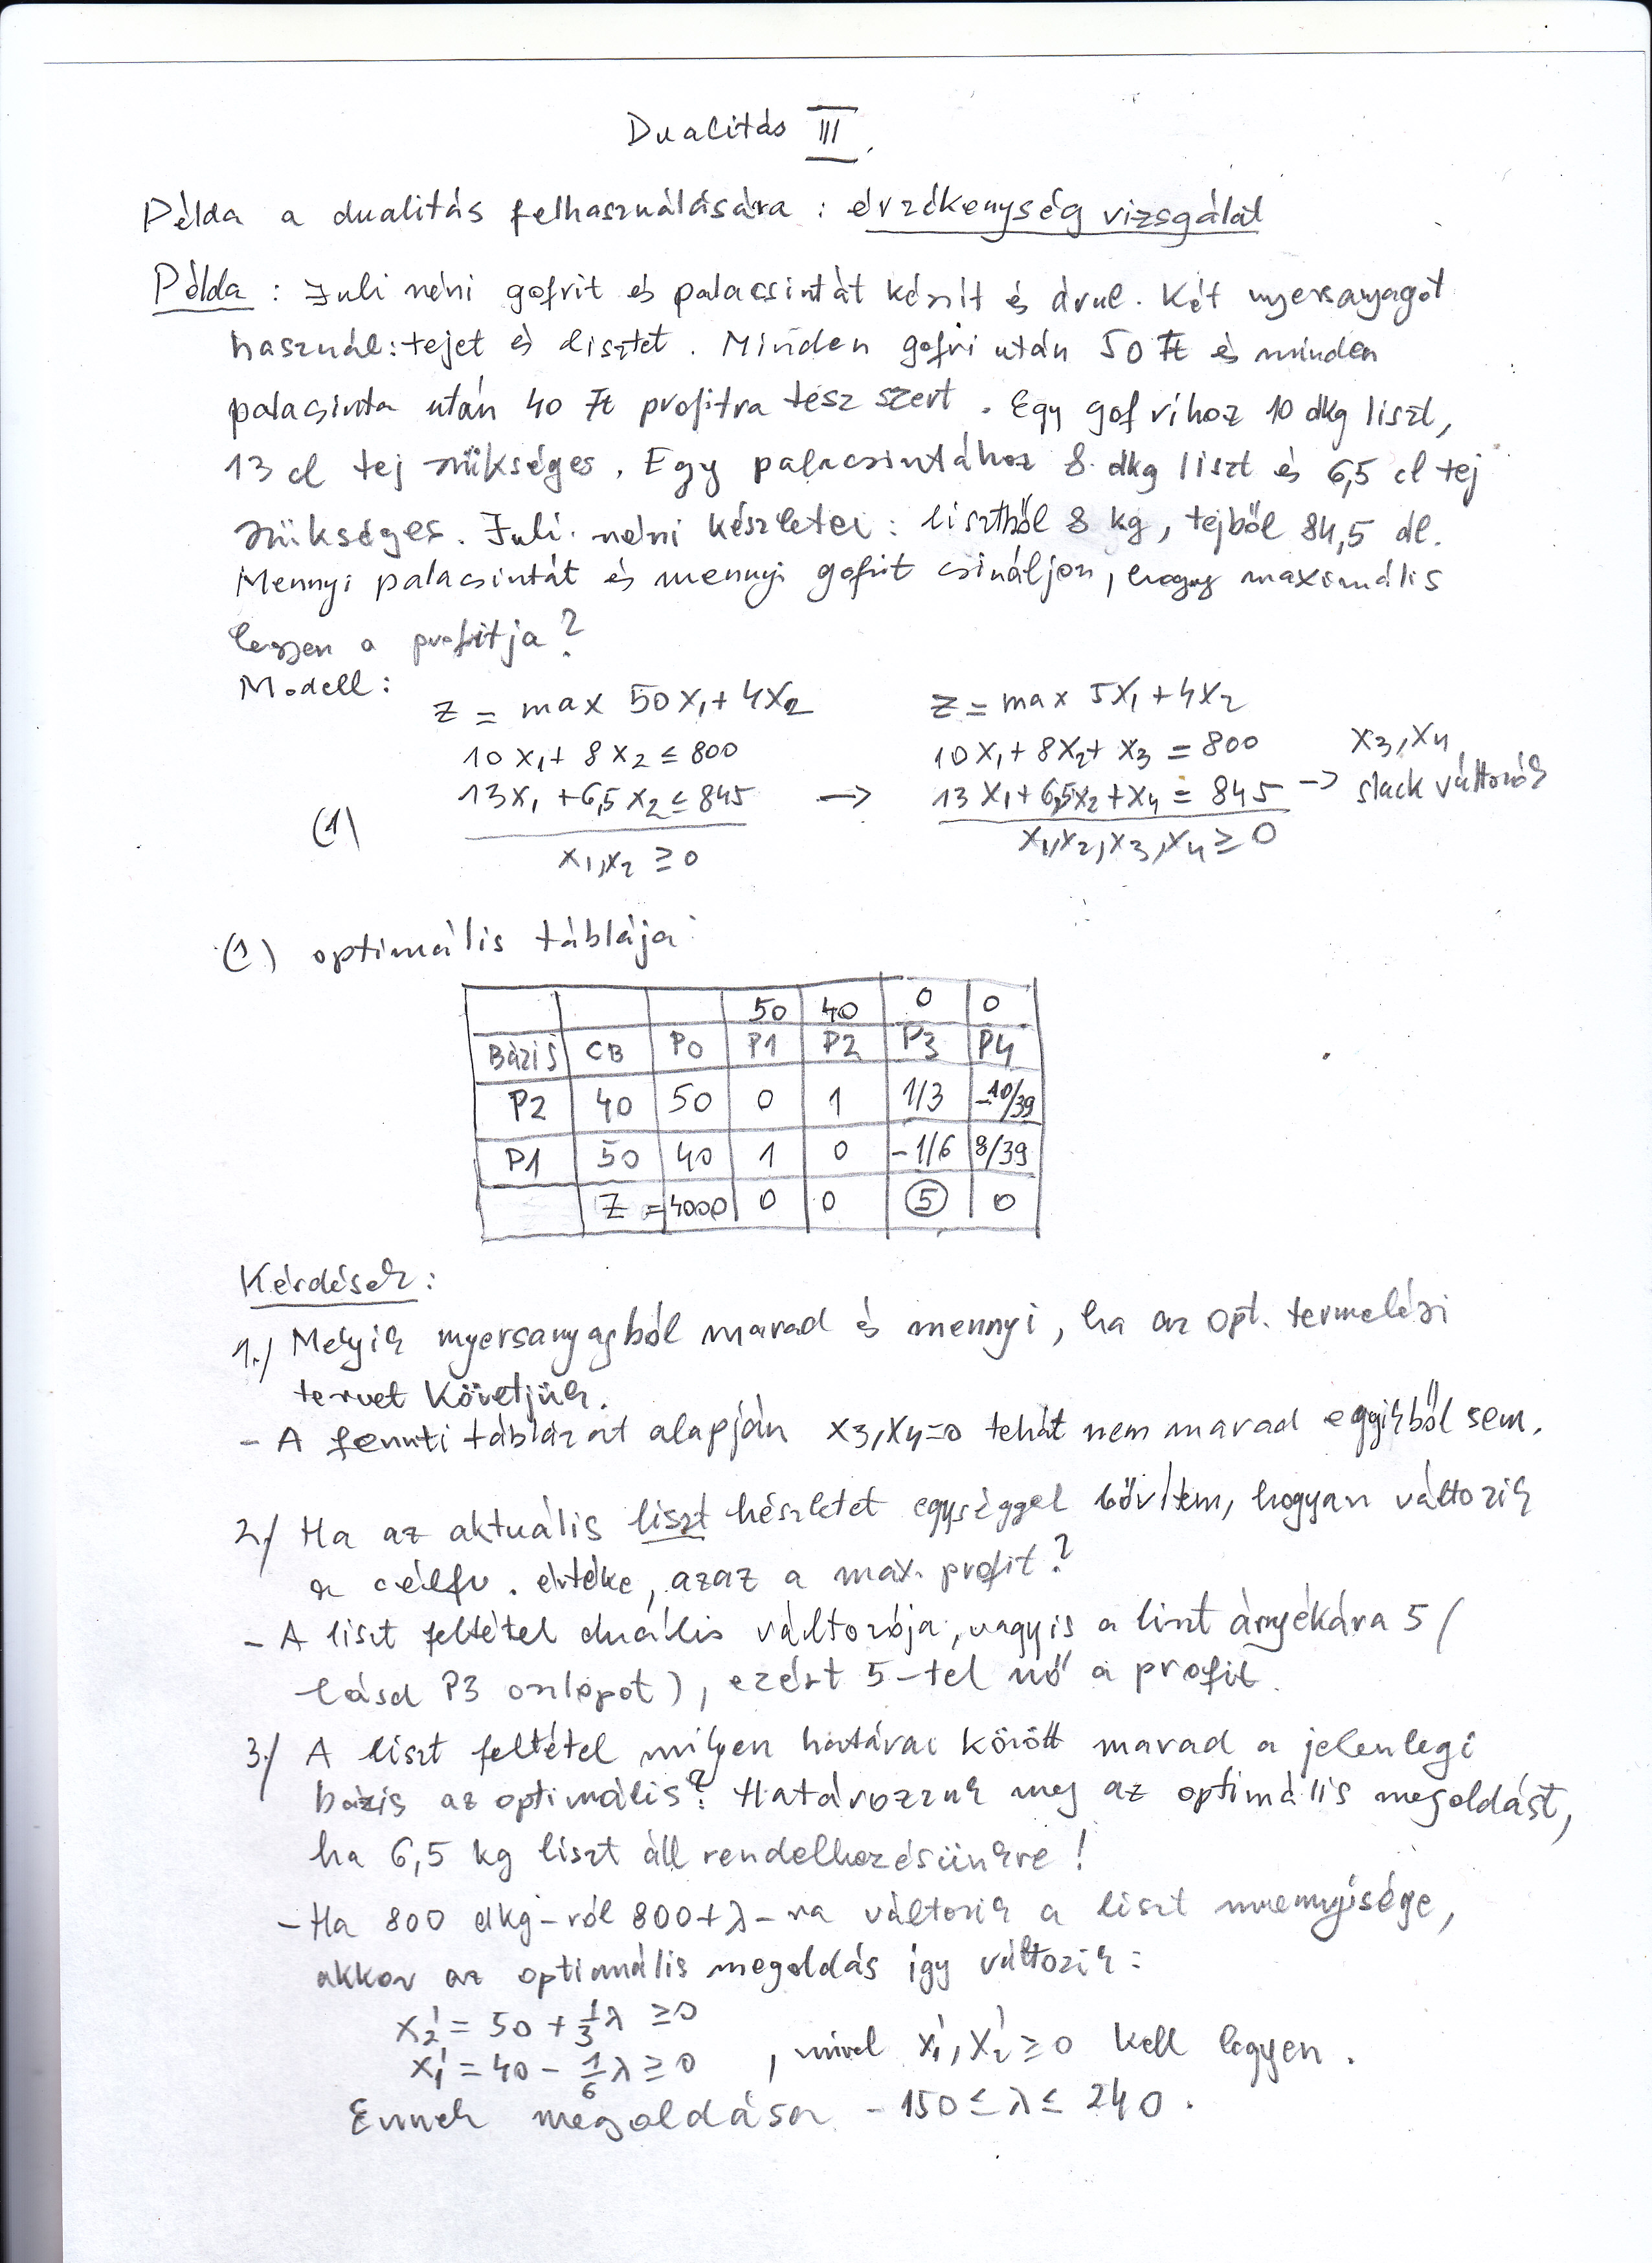 Dualitás III.
Példa a dualitás felhasználására : érzékenység vizsgálat
Példa : Juli néni gofrit és palacsintát készít és árul. Két nyersanyagot
használ: tejet és lisztet. Minden gofri után 50 Ft és minden
palacsinta után 40 Ft profitra tesz szert. Egy gofrihoz 10 dkg liszt,
13 cl tej szükséges. Egy palacsintához 8 dkg liszt és 6,5 cl tej
szükséges. Juli néni készletei : lisztből 8 kg, tejből 84,5 dl.
Mennyi palacsintát és mennyi gofrit csináljon, hogy maximális
legyen a profitja?
Modell:
z = max 50x₁ + 4x₂ z = max 5x₁ + 4x₂
10x₁ + 8x₂ ≤ 800 10x₁ + 8x₂ + x₃ = 800 x₃, x₄
(1) 13x₁ + 6,5x₂ ≤ 845 → 13x₁ + 6,5x₂ + x₄ = 845 → slack változók
x₁, x₂ ≥ 0 x₁, x₂, x₃, x₄ ≥ 0
(1) optimális táblája:
50 40 0 0
Bázis CB P0 P1 P2 P3 P4
P2 40 50 0 1 1/3 -10/39
P1 50 40 1 0 -1/6 8/39
Z = 4000 0 0 5 0
Kérdések:
1./ Melyik nyersanyagból marad és mennyi, ha az opt. termelési
tervet követjük.
- A fennti táblázat alapján x₃, x₄=0 tehát nem marad egyikből sem.
2./ Ha az aktuális liszt készletet egységgel bővítem, hogyan változik
a célfv. értéke, azaz a max. profit?
- A liszt feltétel duális változója, vagyis a liszt árnyékára 5 (
lásd P3 oszlopot), ezért 5-tel nő a profit.
3./ A liszt feltétel milyen határai között marad a jelenlegi
bázis az optimális? Határozzuk meg az optimális megoldást,
ha 6,5 kg liszt áll rendelkezésünkre!
- Ha 800 dkg-ról 800+λ-ra változik a liszt mennyisége,
akkor az optimális megoldás így változik:
x₂' = 50 + 1/3 λ ≥ 0
x₁' = 40 - 1/6 λ ≥ 0 , mivel x₁', x₂' ≥ 0 kell legyen.
Ennek megoldása -150 ≤ λ ≤ 240.